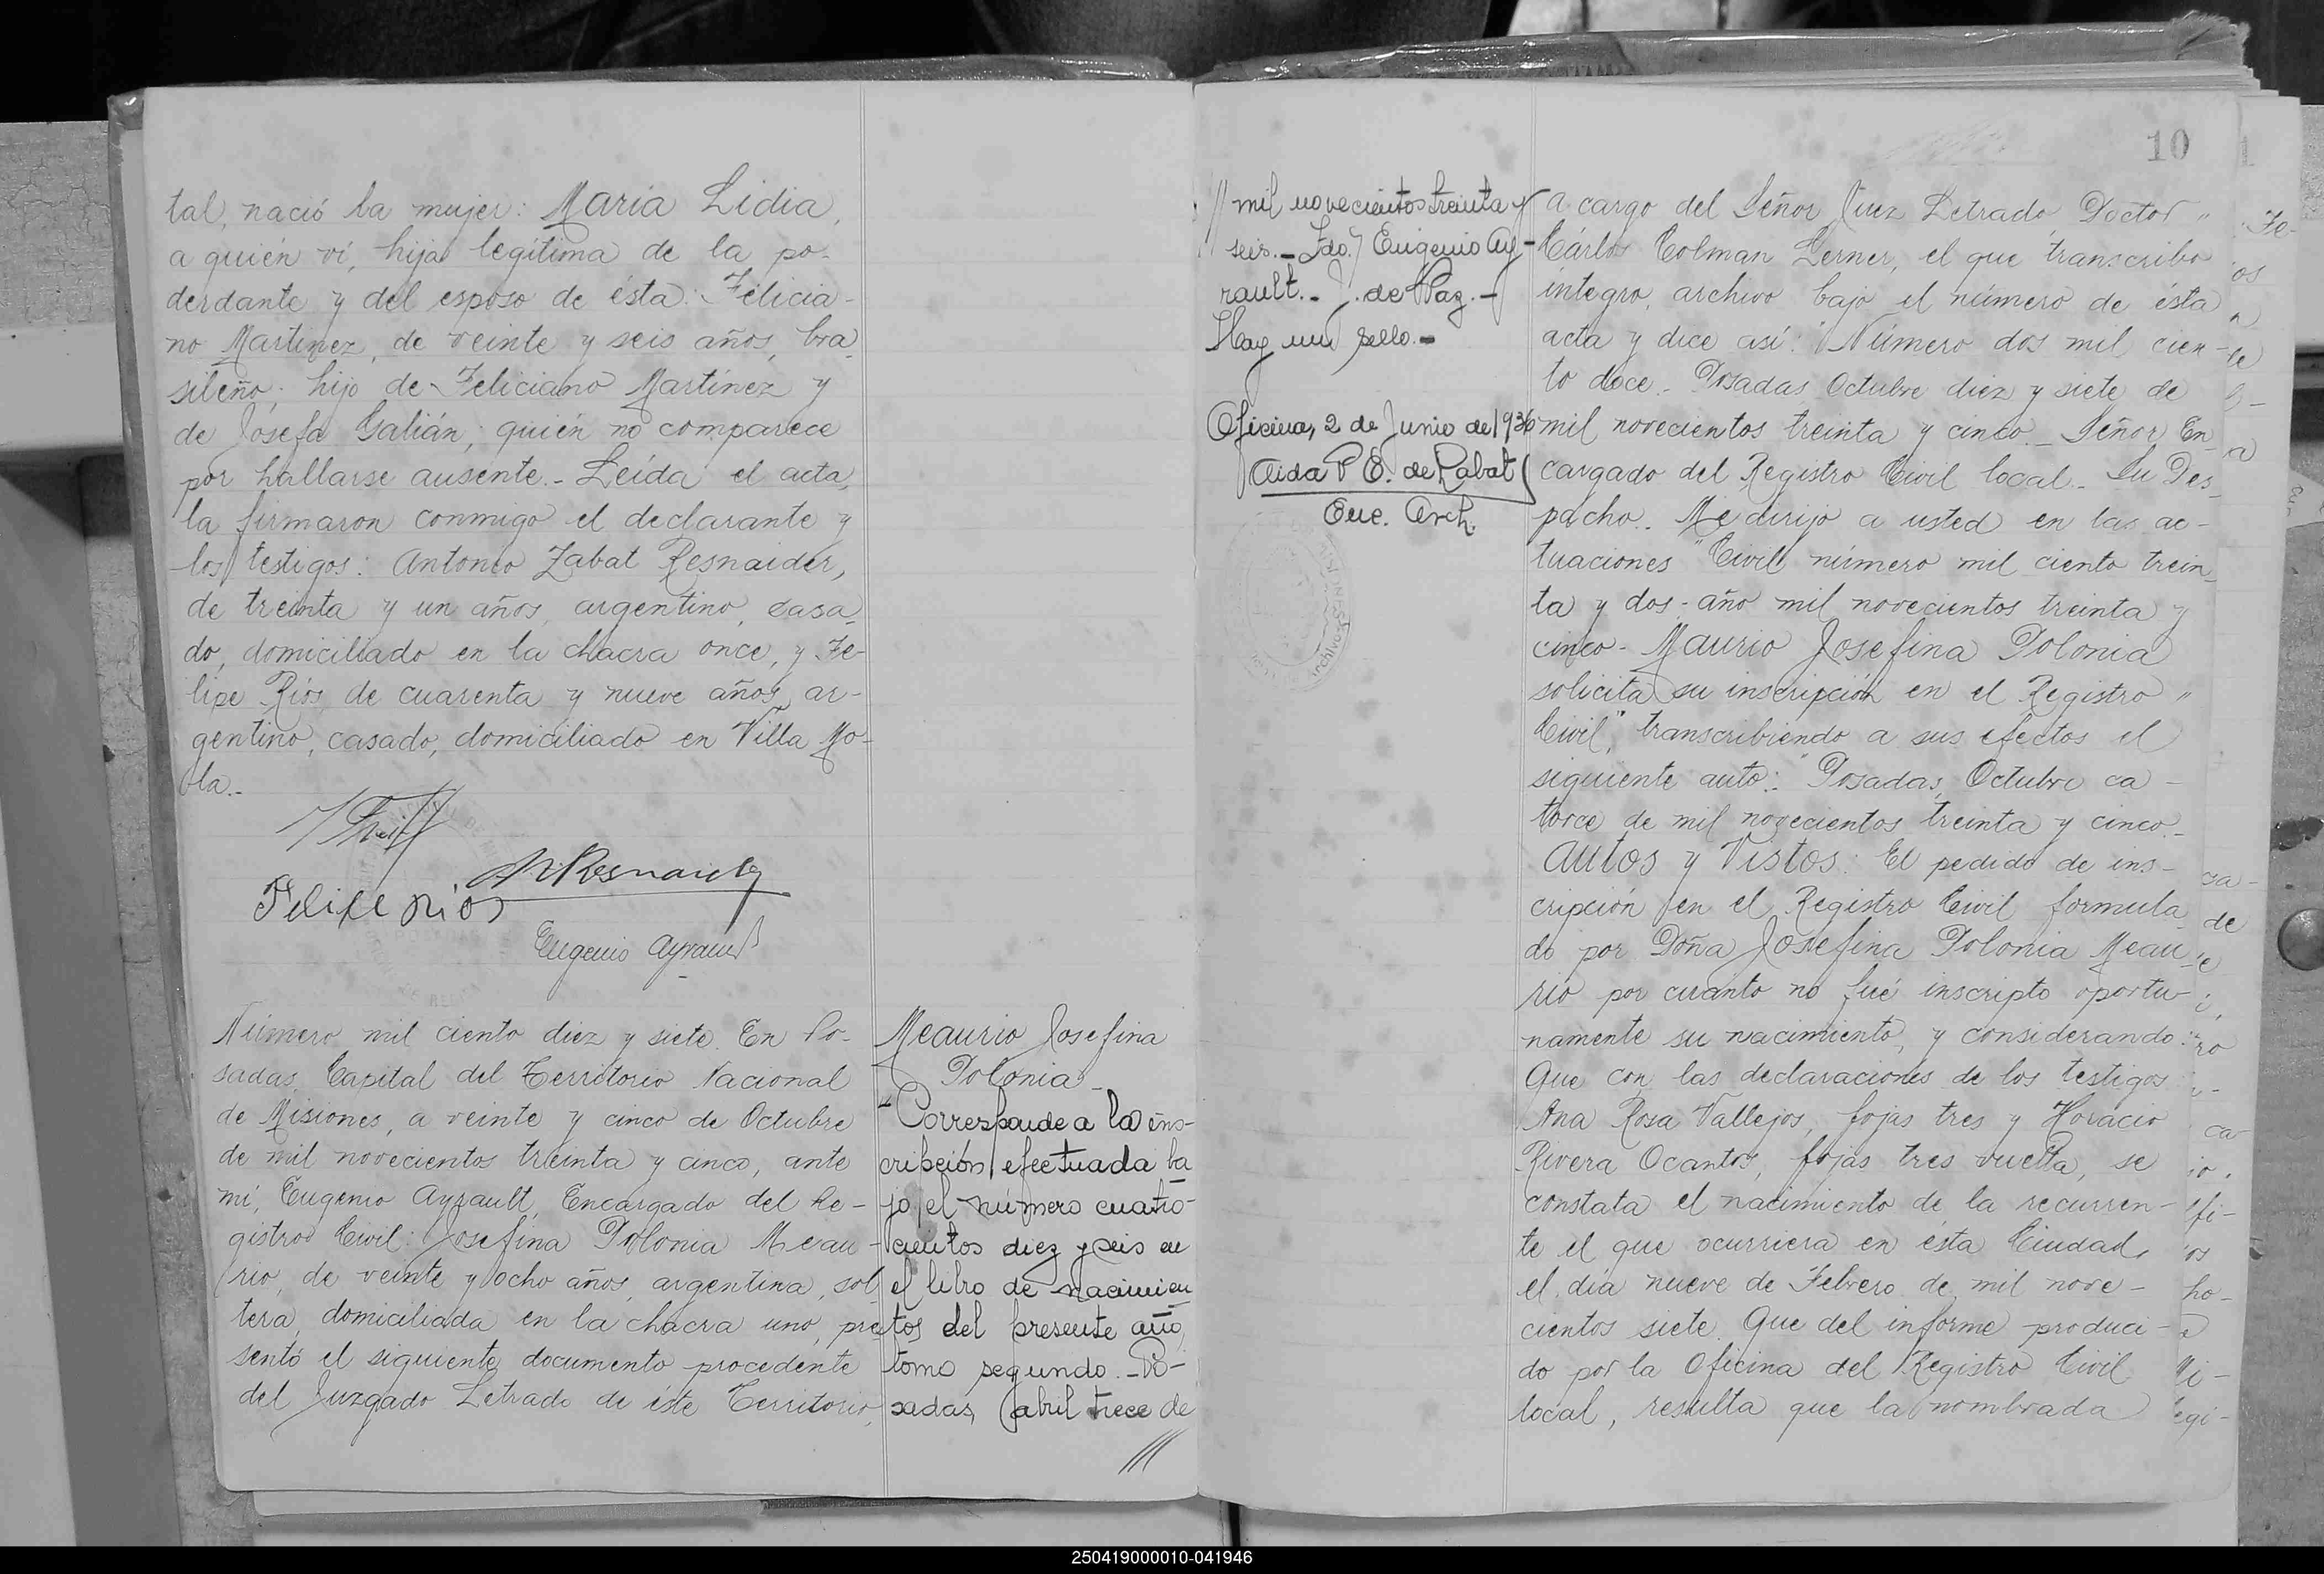 tal, nació la mujer: María Lidia,
a quién ví, hija legítima de la po-
derdante y del esposo de ésta: Felicia-
no Martinez, de veinte y seis años, bra
sileño; hijo de Feliciano Martínez y
de Josefa Galián; quién no comparece
por hallarse ausente.- Leída el acta,
la firmaron conmigo el declarante y
los testigos: Antonio Zabat Resnaider,
de treinta y un años, argentino, casa
do, domiciliado en la chacra once, y Fe-
lipe Ríos, de cuarenta y nueve años, ar-
gentino, casado, domiciliado en Villa Mo-
la.-
Felipe Rios
Eugenio Ayrault
Número mil ciento diez y siete. En Po-
sadas, Capital del Territorio Nacional
de Misiones, a veinte y cinco de Octubre
de mil novecientos treinta y cinco, ante
mí, Eugenio Ayrault, Encargado del Re-
gistro Civil: Josefina Polonia Meau-
rio, de veinte y ocho años, argentina, sol
tera, domiciliada en la chacra uno, pre
sentó el siguiente documento procedente
del Juzgado Letrado de éste Territorio,
Meaurio Josefina
Polonia-
"Corresponde a la ins-
cripción efectuada ba
jo el número cuatro-
cientos diez y seis en
el libro de nacimien
tos del presente año,
tomo segundo.- Po-
sadas, abril trece de
///
10
// mil novecientos treinta y
seis.- Fdo.) Eugenio Ay-
rault.- J. de Paz.-
Hay un sello.-
Oficina, 2 de Junio de 1936
Aida P E. de Rabat
Enc. Arch.
a cargo del Señor Juez Letrado, Doctor "
Cárlos Colman Lerner, el que transcribo
íntegro, archivo bajo el número de ésta
acta y dice así: "Número dos mil cien-
to doce.- Posadas, Octubre diez y siete de
mil novecientos treinta y cinco.- Señor En
cargado del Registro Civil local.- Su Des
pacho.- Me dirijo a usted en las ac-
tuaciones "Civil número mil ciento trein
ta y dos- año mil novecientos treinta y
cinco- Maurio Josefina Polonia
solicita su inscripción en el Registro "
Civil", transcribiendo a sus efectos el
siguiente auto: "Posadas, Octubre ca-
torce de mil novecientos treinta y cinco.-
Autos y Vistos: El pedido de ins-
cripción en el Registro Civil formula
do por Doña Josefina Polonia Meau
rio por cuanto no fué inscripto oportu-
namente su nacimiento, y considerando:
Que con las declaraciones de los testigos
Ana Rosa Vallejos, fojas tres y Horacio
Rivera Ocantos, fojas tres vuelta, se
constata el nacimiento de la recurren-
te el que ocurriera en ésta Ciudad,
el día nueve de Febrero de mil nove-
cientos siete. Que del informe produci-
do por la Oficina del Registro Civil
local, resulta que la nombrada
250419000010-041946